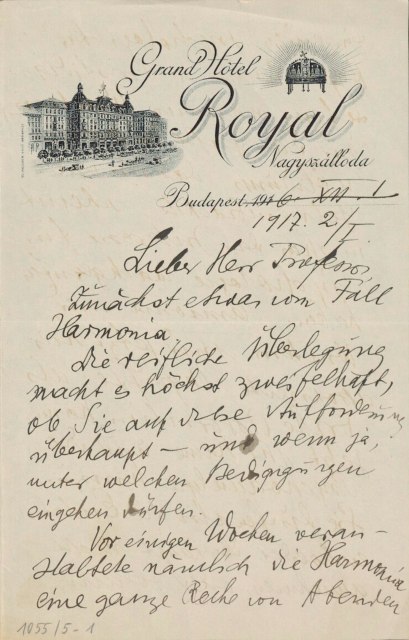 Grand Hôtel
Royal
Nagyszálloda
Budapest, 1916. XII. 1
1917. 2/I.
Lieber Herr Professor,
Zunächst etwas vom Fall
Harmonia,
die reifliche Überlegung
macht es höchst zweifelhaft,
ob Sie auf diese Aufforderung
überhaupt – und wenn ja,
unter welchen Bedingungen
eingehen dürfen.
Vor einigen Wochen veran-
staltete nämlich die Harmonia
eine ganze Reihe von Abenden
1055/5-1